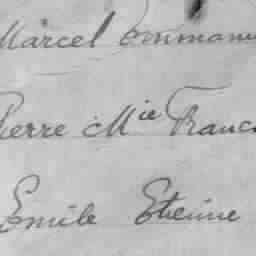 Marcel Emmanu
Pierre Mie Franc
Emile Etienne